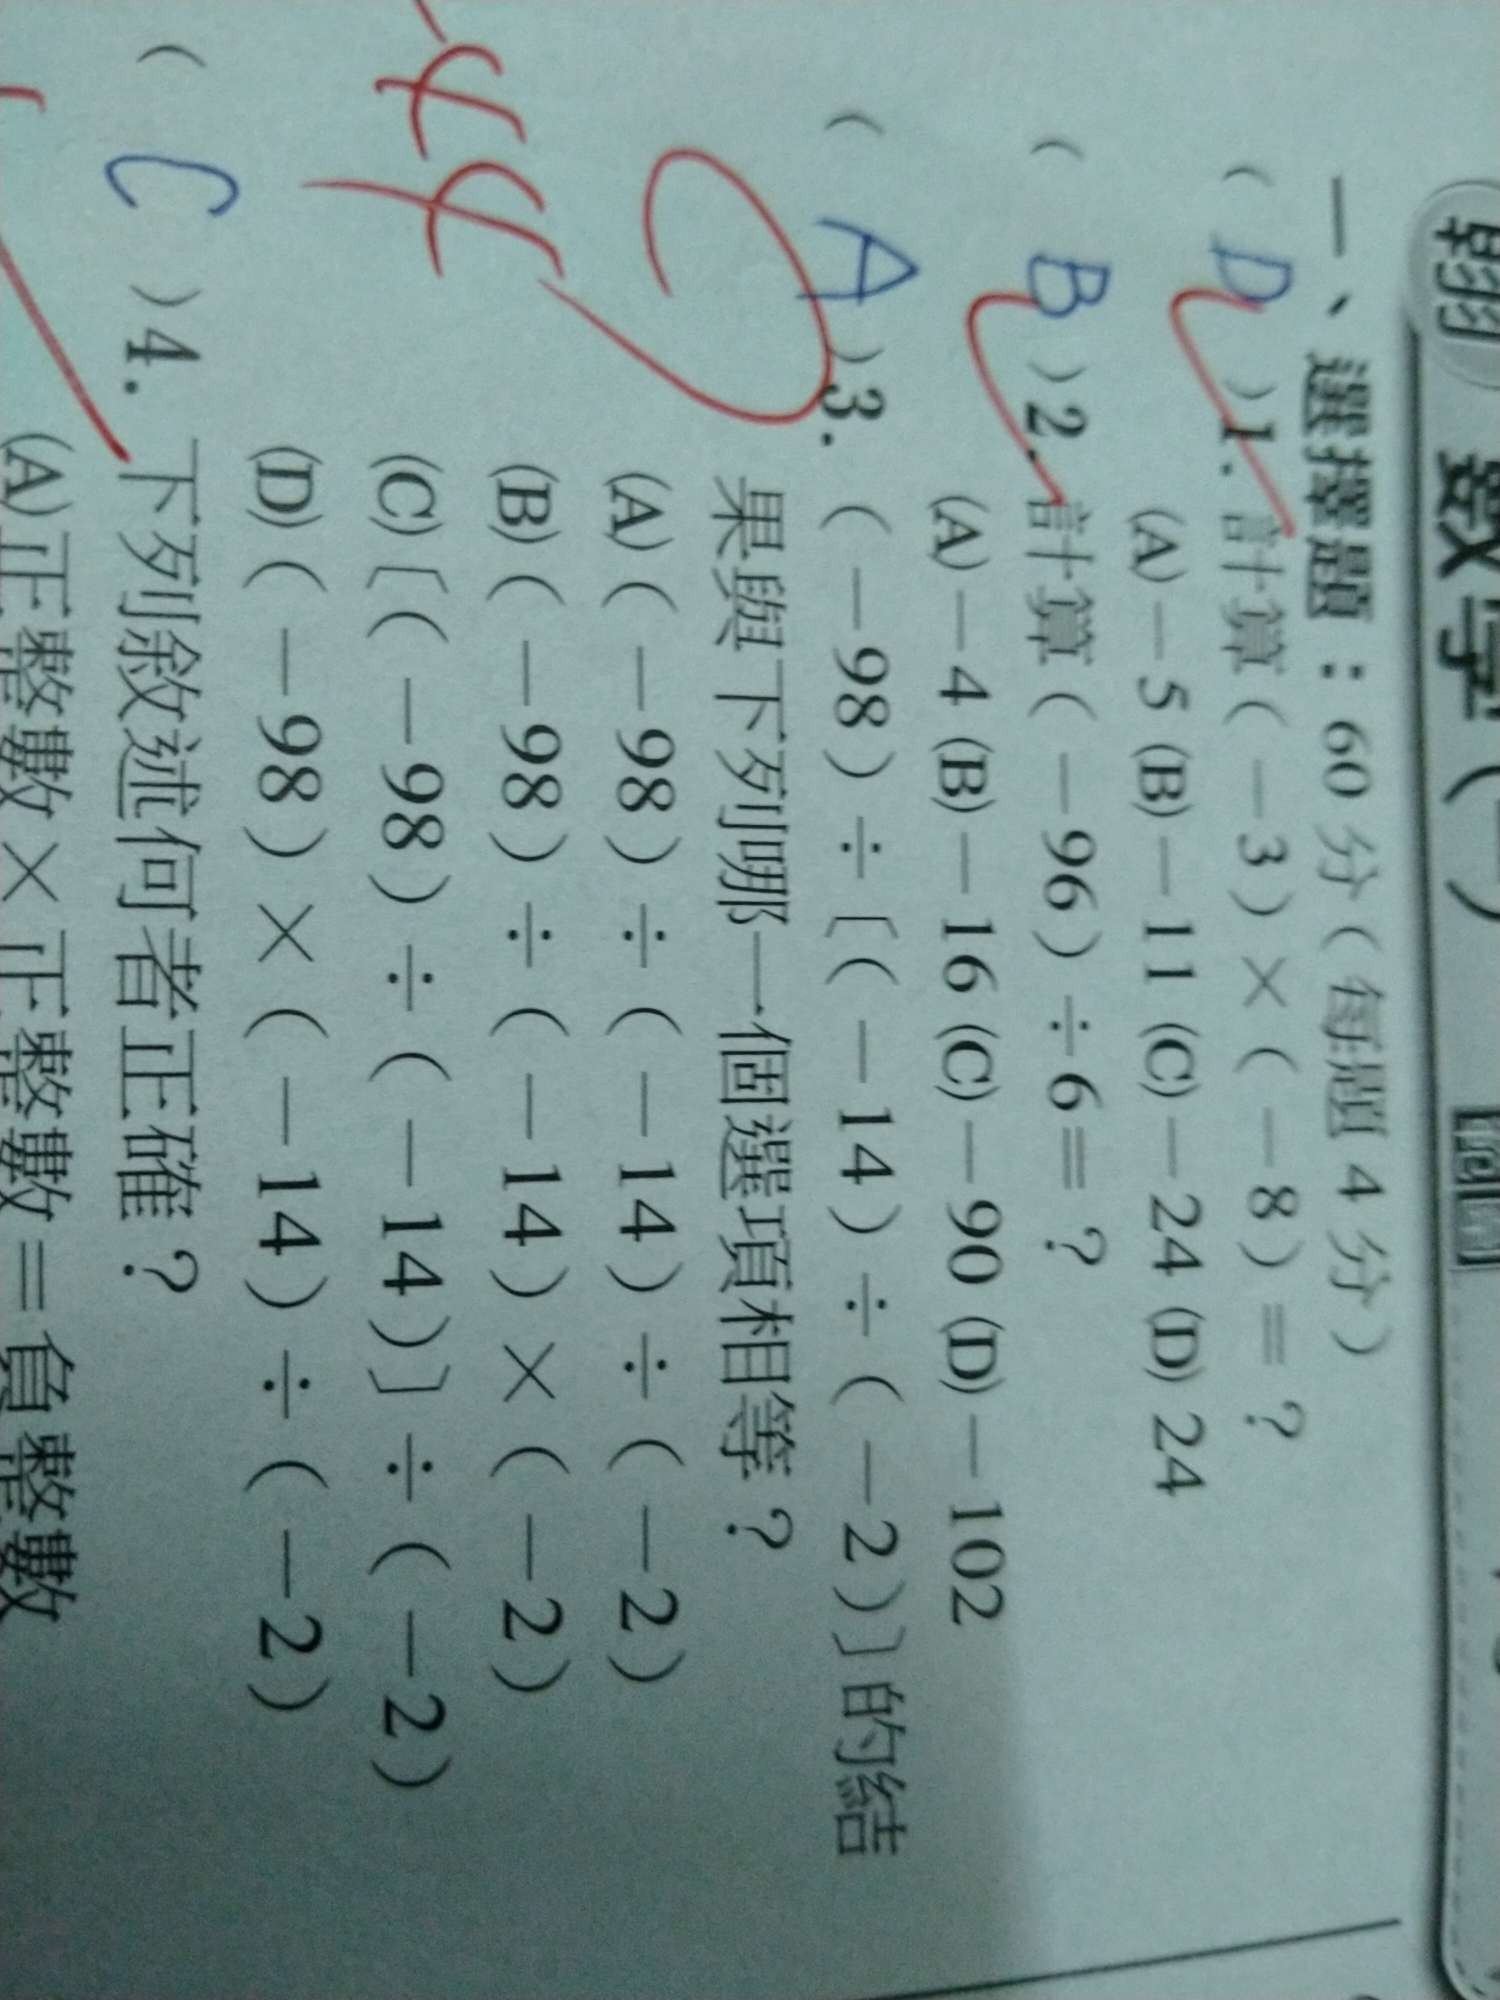 翰 數學(一)
一、選擇題：60 分（每題 4 分）
( D )1. 計算(－3)×(－8)＝？
(A)－5 (B)－11 (C)－24 (D) 24
( B )2. 計算(－96)÷6＝？
(A)－4 (B)－16 (C)－90 (D)－102
( A )3. (－98)÷〔(－14)÷(－2)〕的結
果與下列哪一個選項相等？
(A)(－98)÷(－14)÷(－2)
(B)(－98)÷(－14)×(－2)
(C)〔(－98)÷(－14)〕÷(－2)
(D)(－98)×(－14)÷(－2)
( C )4. 下列敘述何者正確？
(A)正整數×正整數＝負整數